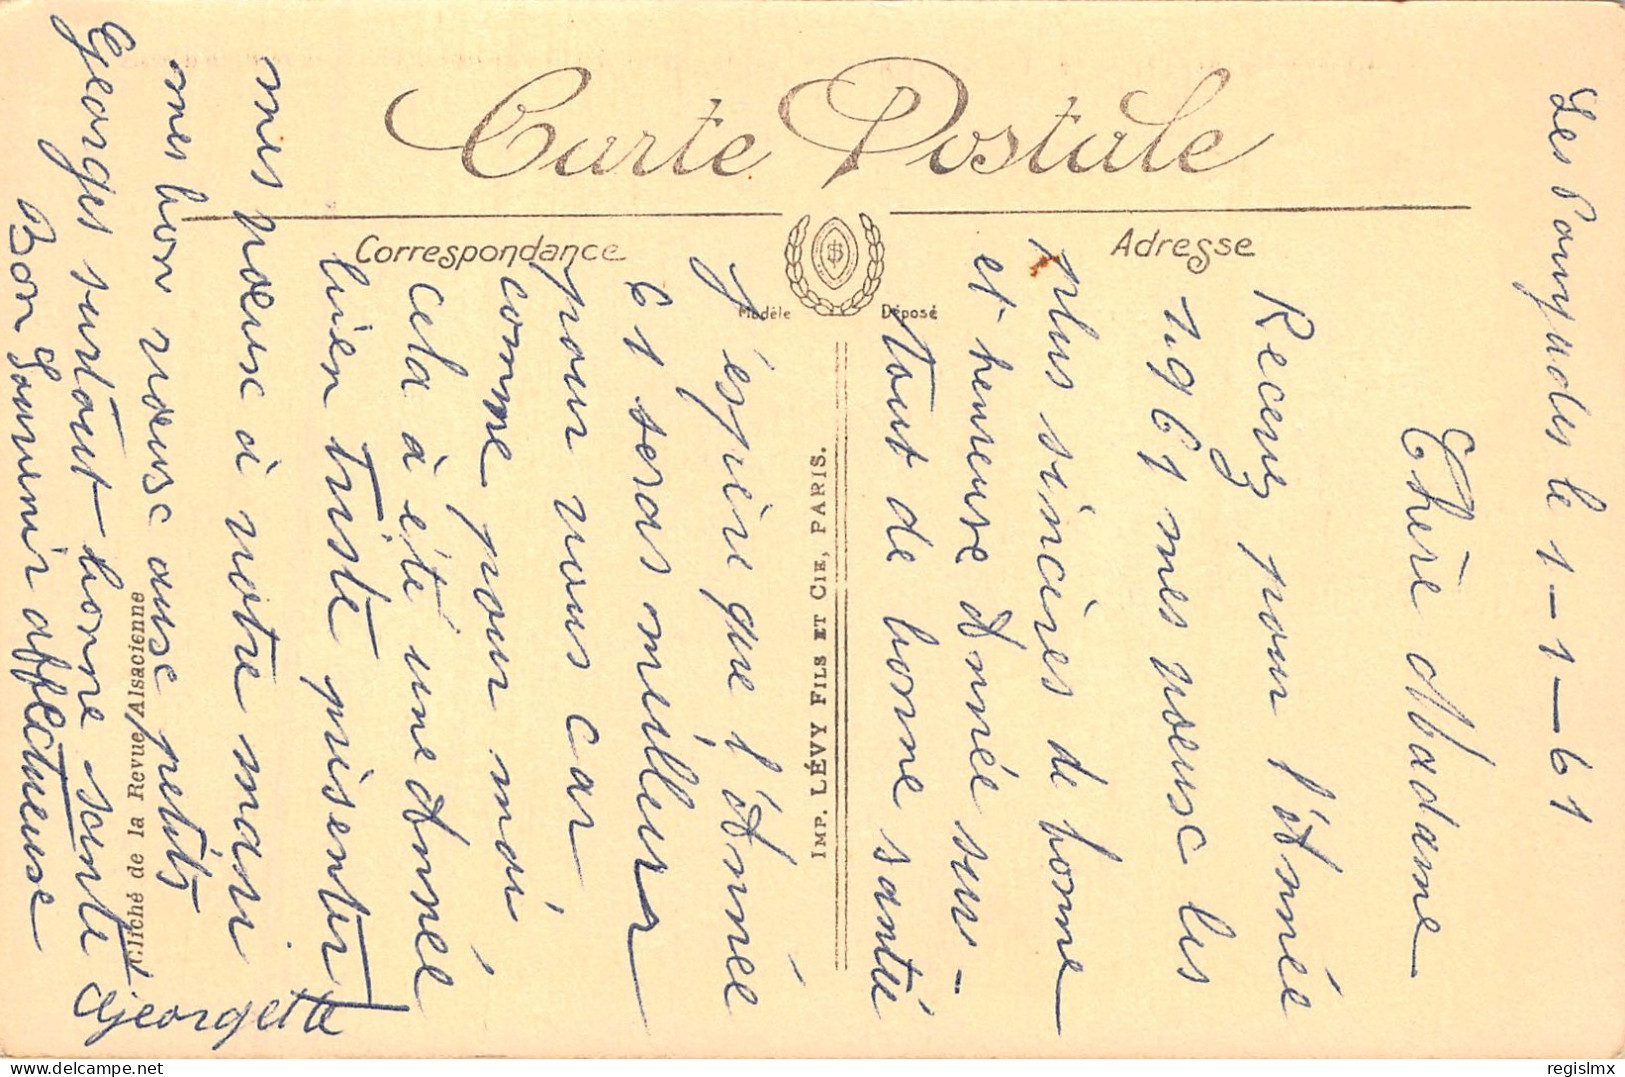 Carte Postale
Correspondance
Adresse
Modèle Déposé
IMP. LÉVY FILS ET CIE, PARIS.
Cliché de la Revue Alsacienne
Les le 1-1-61
Chère Madame
Recevez pour l'Année
1961 mes voeusc les
plus sincires de bonne
et heureuse Année sur-
tout de bonne santée
J'éspère que l'Année
61 seras meilleur
pour vous car
comme pour moi
cela à été une Année
bien triste présenter
mes voeux à votre mari
mes bon voeusc ause petits
Georges surtout bonne sante
Bon Souvenir affectueuse
Georgette
regislmx